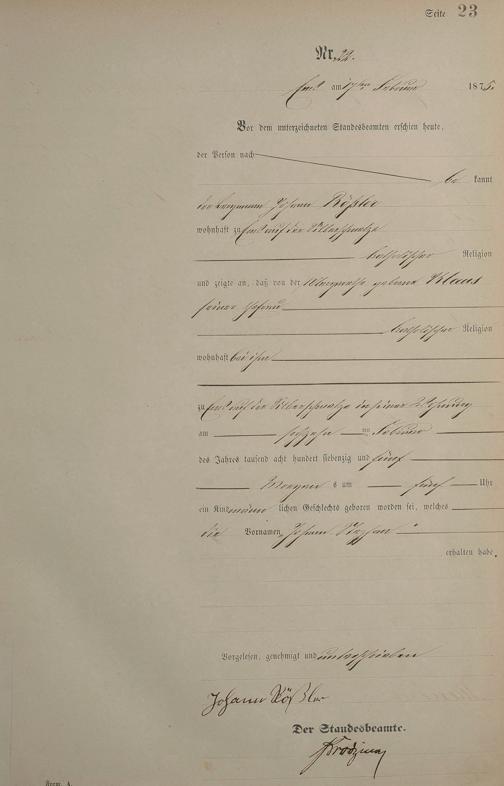 Seite 23
Nr. 22.
Ems am 17ten Februar 1875.
Vor dem unterzeichneten Standesbeamten erschien heute,
der Person nach
be kannt
der Bergmann Johann Rößler
wohnhaft zu Ems auf der Silberschmelze
katholischer Religion
und zeigte an, daß von der Margarethe geborene Klaus
seiner Ehefrau
katholischer Religion
wohnhaft bei ihm
zu Ems auf der Silberschmelze in seiner Wohnung
am ten Februar
des Jahres tausend acht hundert siebenzig und fünf
Morgen s um fünf Uhr
ein Kind männ lichen Geschlechts geboren worden sei, welches
die Vornamen „Johann Stephan"
erhalten habe.
Vorgelesen, genehmigt und unterschrieben
Johann Rößler
Der Standesbeamte.
Form. A.